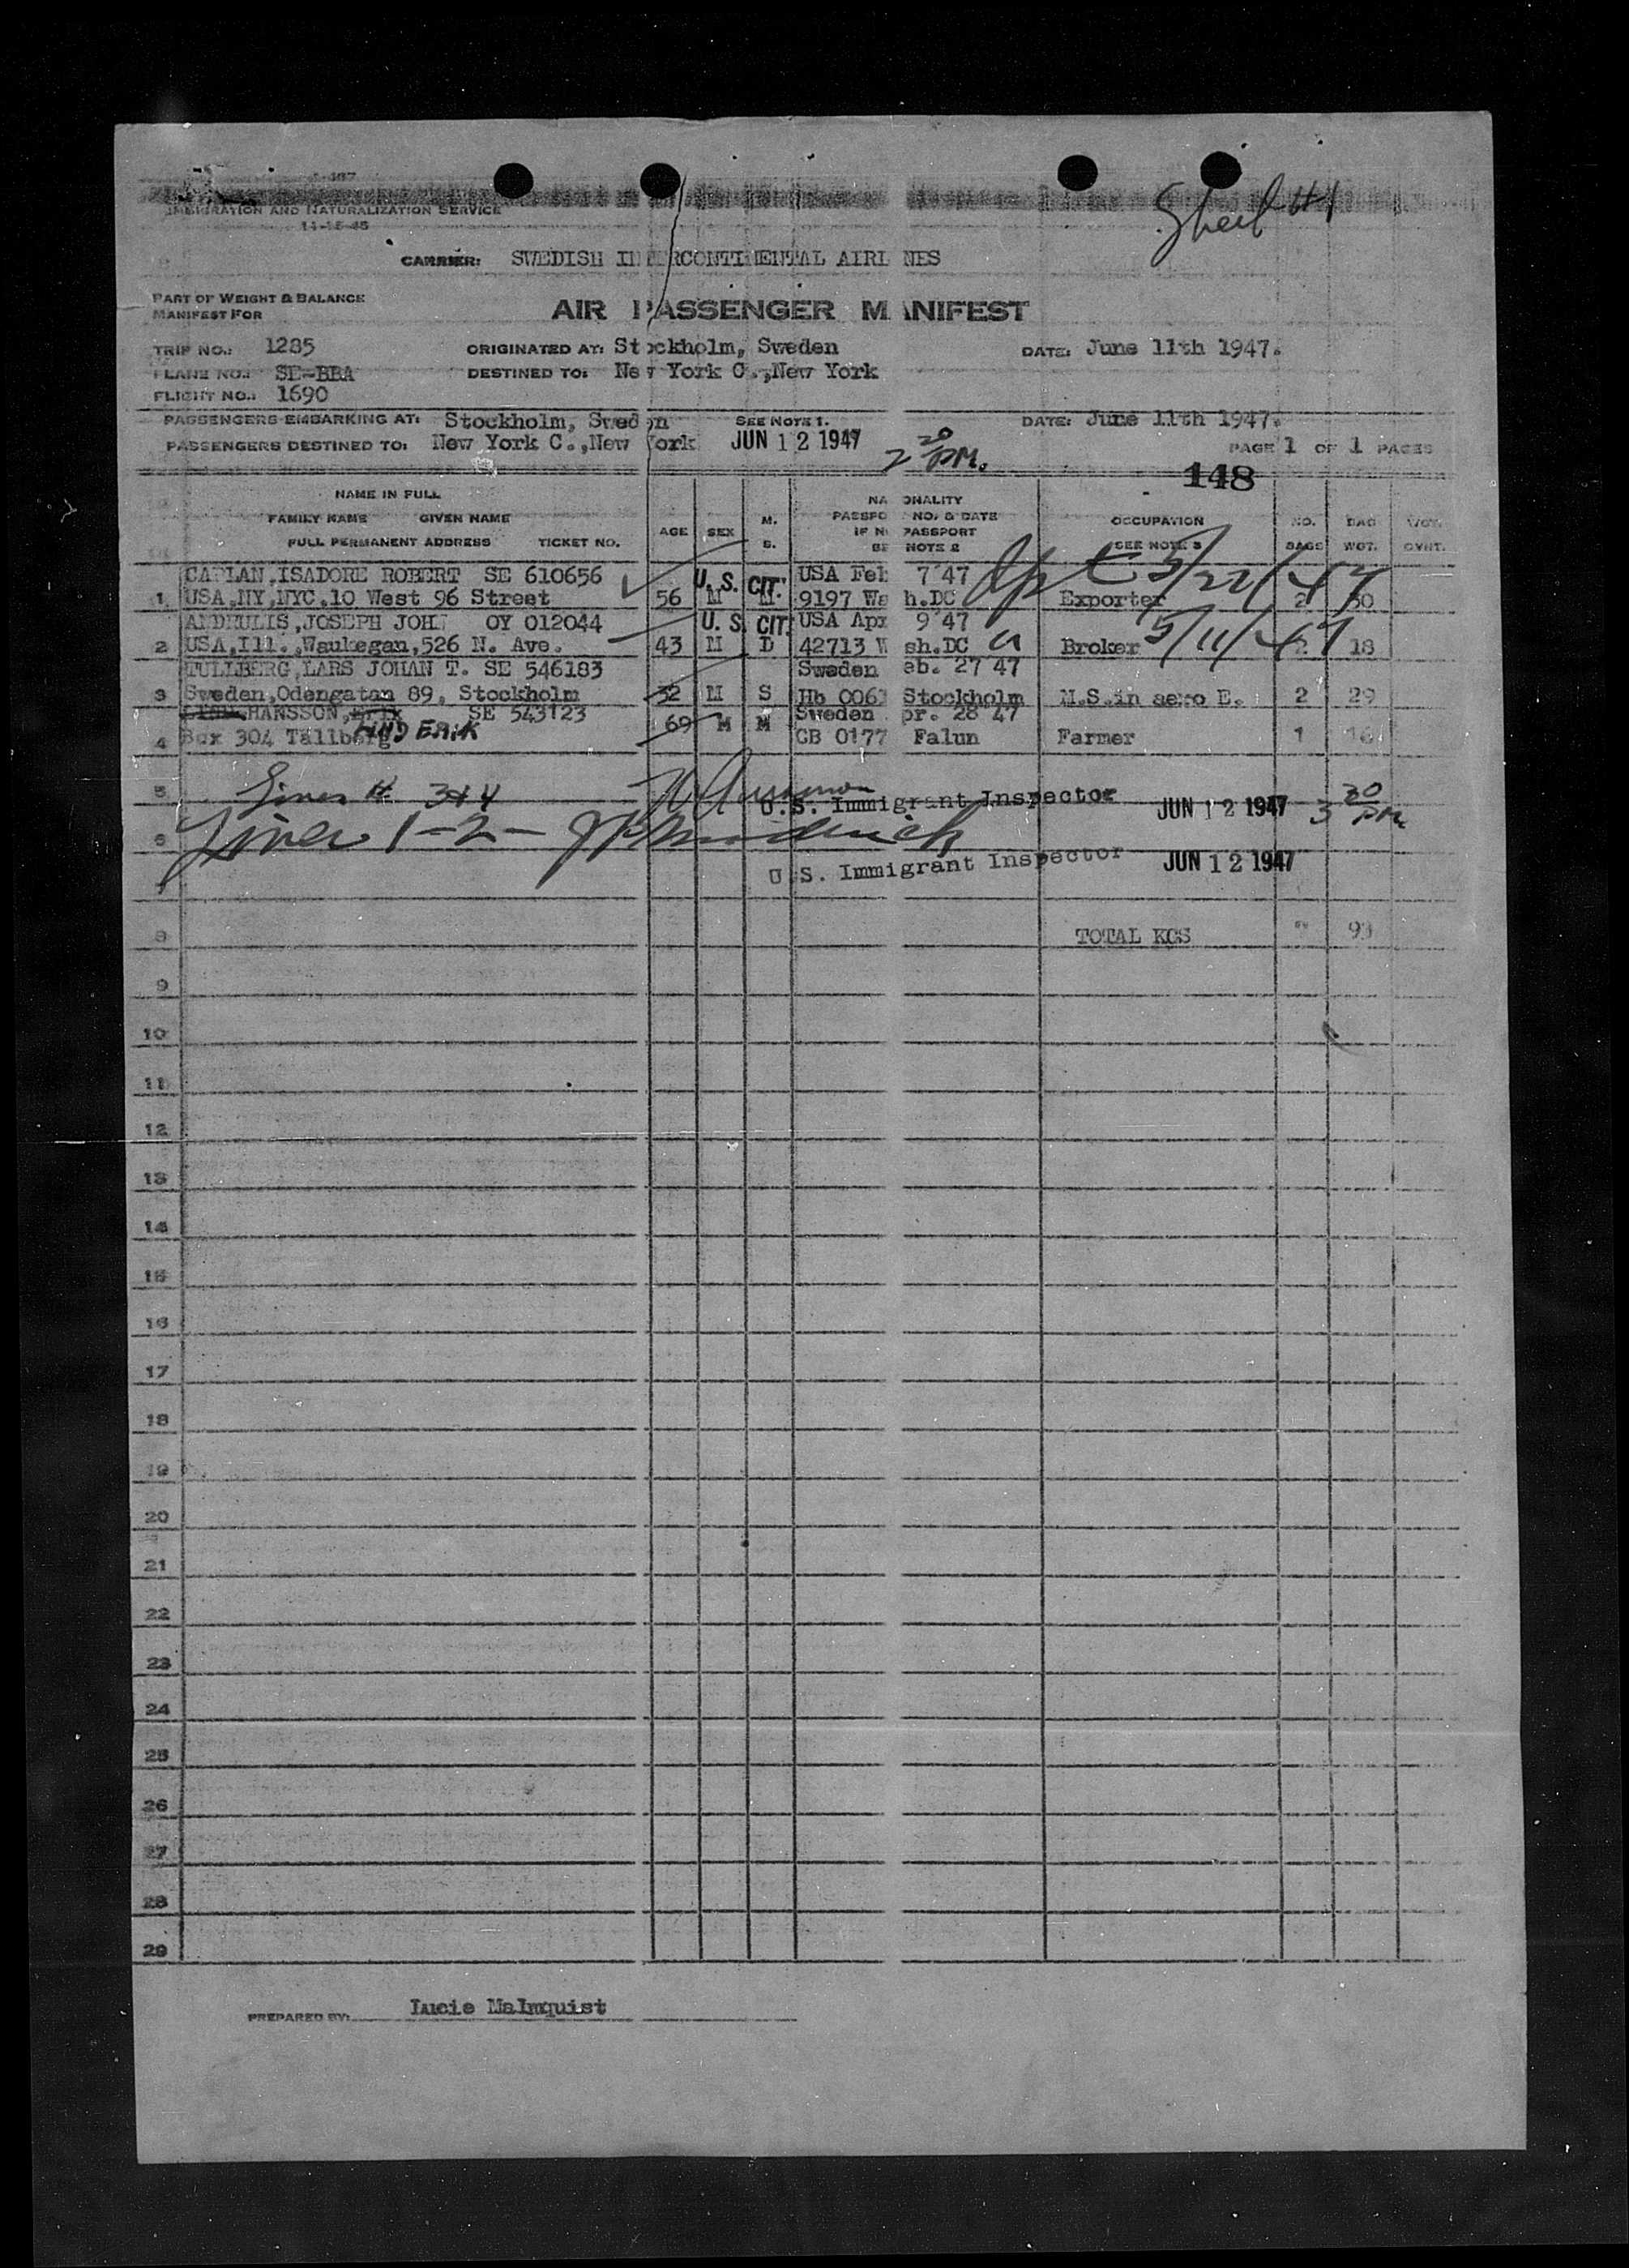 I-467
IMMIGRATION AND NATURALIZATION SERVICE
11-15-45
Sheet #1
CARRIER: SWEDISH INTERCONTINENTAL AIRLINES
PART OF WEIGHT & BALANCE
MANIFEST FOR
AIR PASSENGER MANIFEST
TRIP NO.: 1285 ORIGINATED AT: Stockholm, Sweden DATE: June 11th 1947.
PLANE NO.: SE-BBA DESTINED TO: New York C.,New York
FLIGHT NO.: 1690
PASSENGERS EMBARKING AT: Stockholm, Sweden SEE NOTE 1. DATE: June 11th 1947.
PASSENGERS DESTINED TO: New York C.,New York JUN 12 1947 2 20 PM. PAGE 1 OF 1 PAGES
148
NAME IN FULL
FAMILY NAME GIVEN NAME
FULL PERMANENT ADDRESS TICKET NO.
AGE SEX M. S.
NATIONALITY
PASSPORT NO. & DATE
IF NO PASSPORT
SEE NOTE 2
OCCUPATION
SEE NOTE 3
NO. BAGS BAG WGT. WGT. OVHT.
CAPLAN,ISADORE ROBERT SE 610656 U. S. CIT. USA Feb 7'47 5/22/47
1 USA,NY,NYC,10 West 96 Street 56 M M 9197 Wash.DC Exporter 2 30
ANDRULIS,JOSEPH JOHN OY 012044 U. S. CIT. USA Apr 9'47 5/11/47
2 USA,Ill.,Waukegan,526 N. Ave. 43 M D 42713 Wash.DC Broker 2 18
TULLBERG,LARS JOHAN T. SE 546183 Sweden Feb. 27 47
3 Sweden,Odengatan 89, Stockholm 32 M S Hb 0061 Stockholm M.S.in aero E. 2 29
HANSSON,Erik SE 543123 Sweden Apr. 28 47
4 Box 304 Tällberg HIND ERIK 69 M M CB 0177 Falun Farmer 1 16
5 Lines # 3+4 U.S. Immigrant Inspector JUN 12 1947 3 20 PM
6 Lines 1-2-
7 U.S. Immigrant Inspector JUN 12 1947
8 TOTAL KGS 93
9
10
11
12
13
14
15
16
17
18
19
20
21
22
23
24
25
26
27
28
29
PREPARED BY: Lucie Malmquist